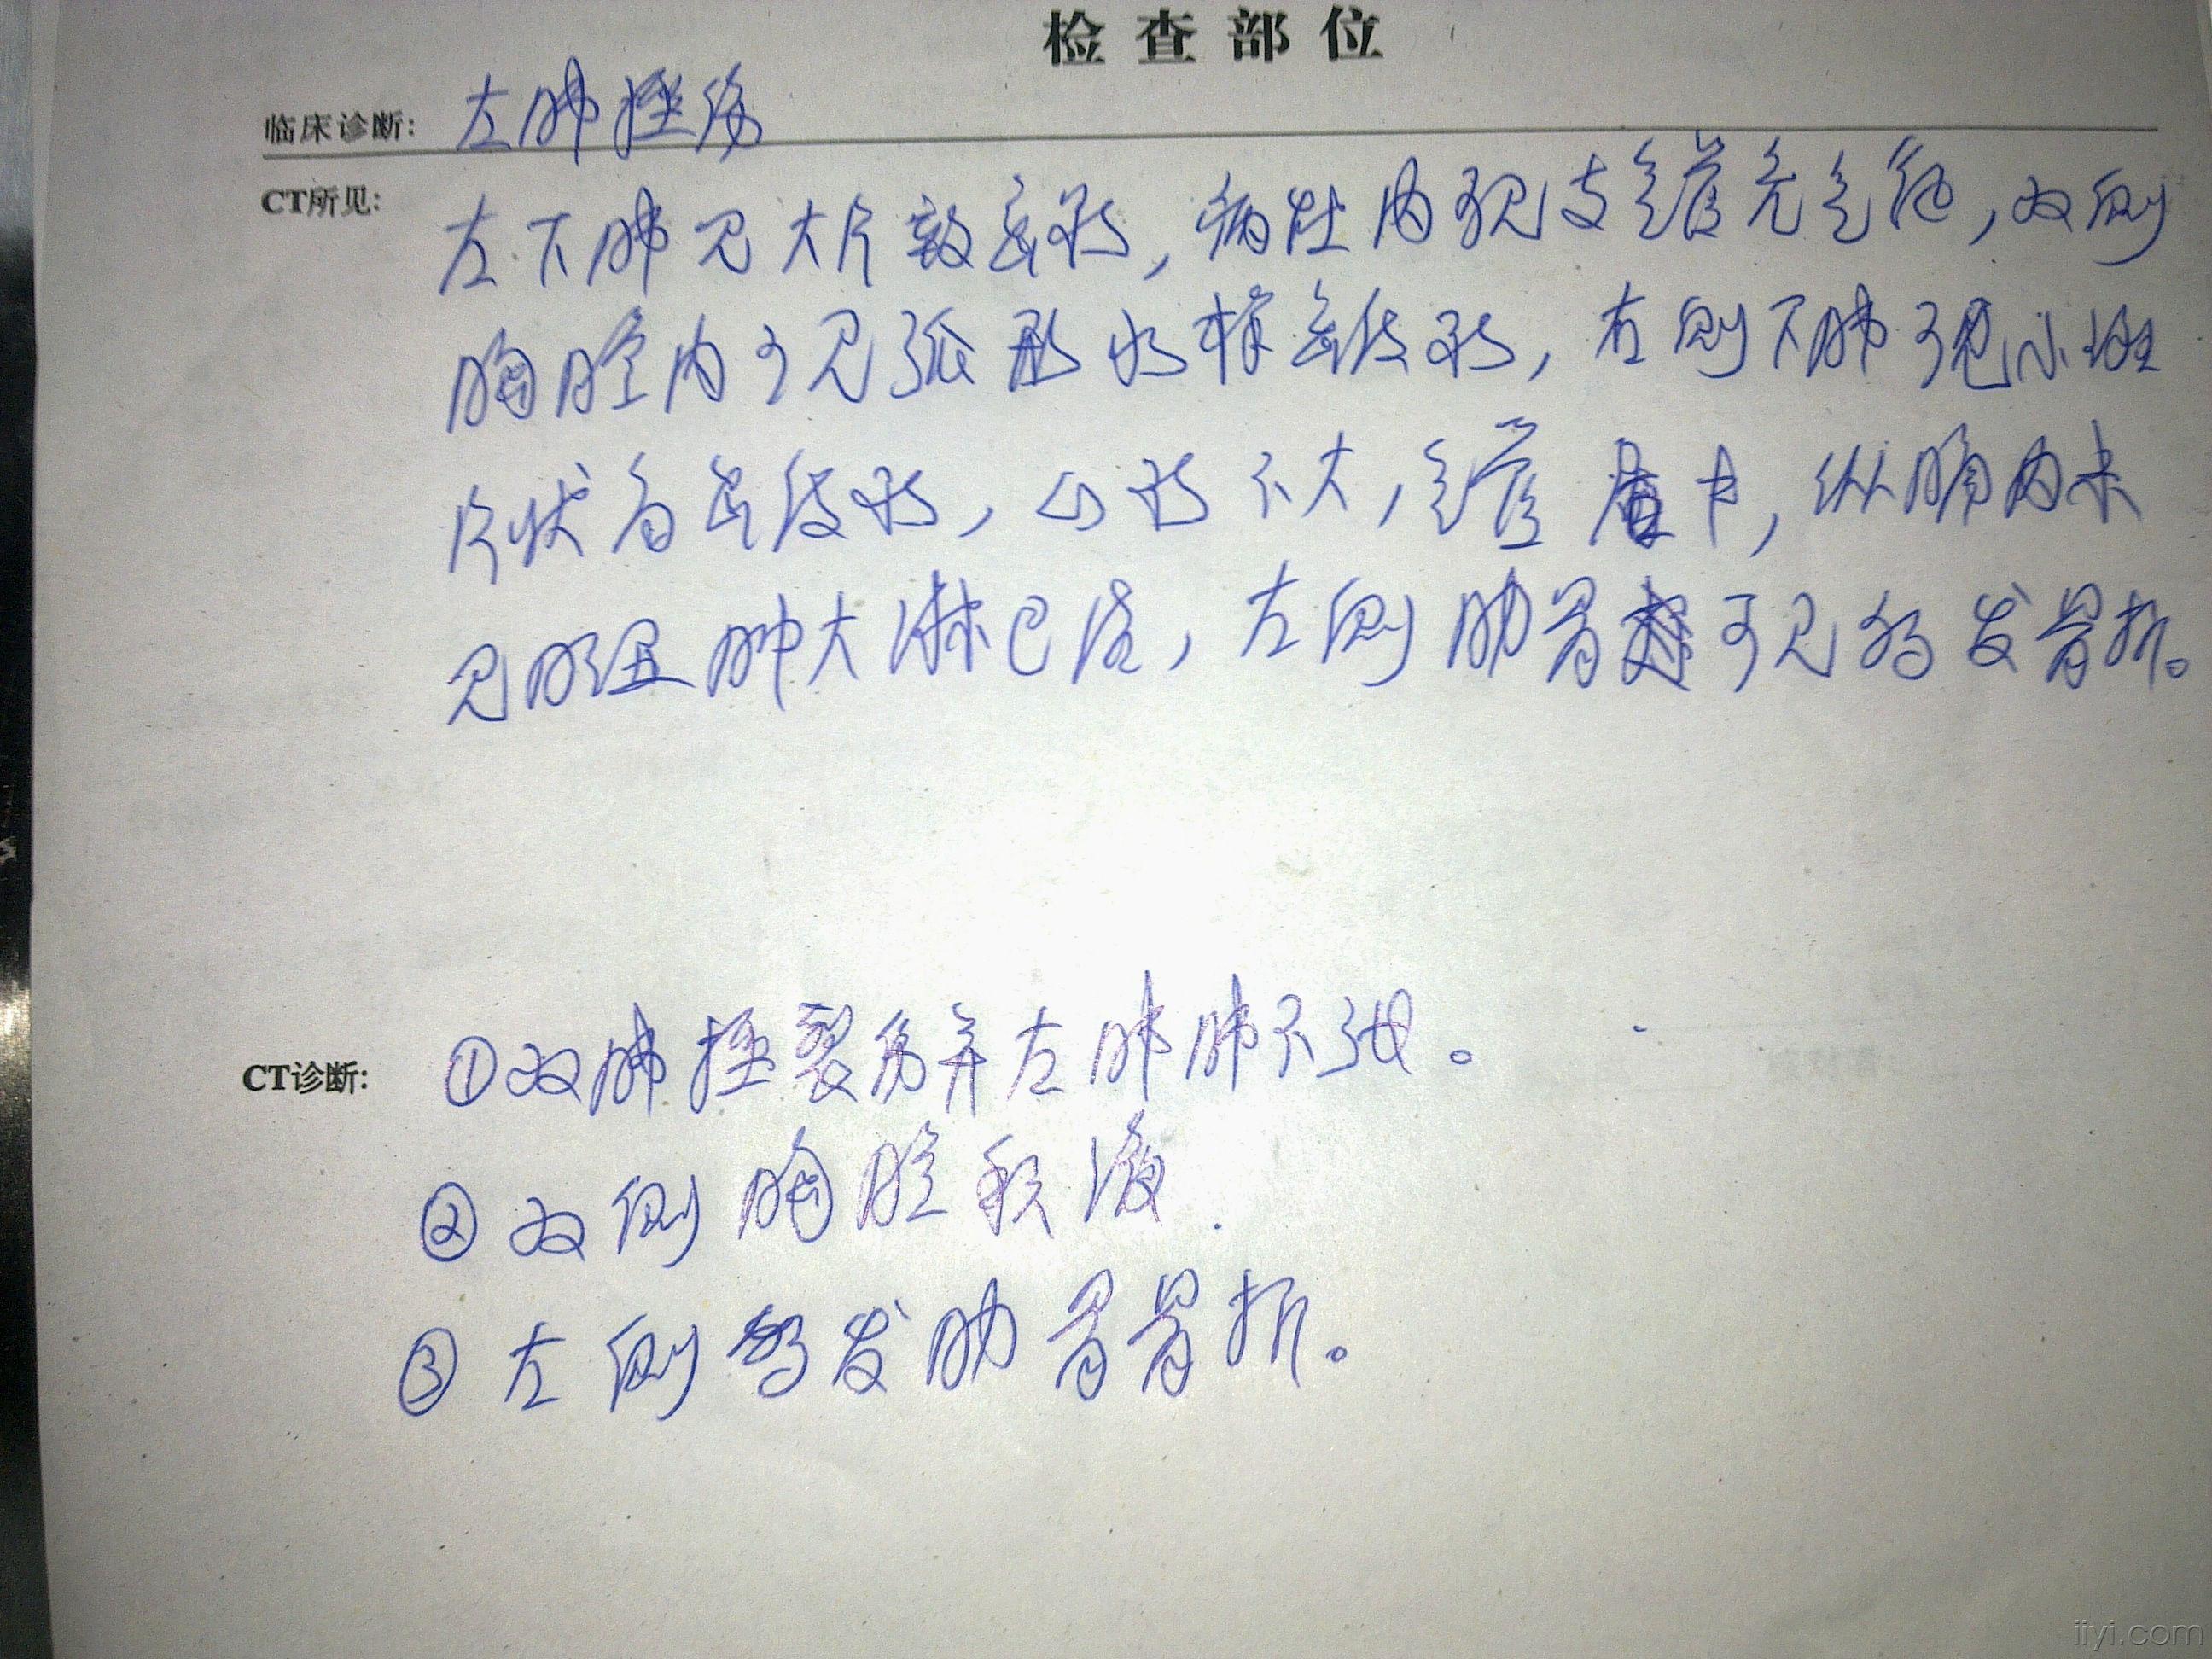 检查部位
临床诊断: 左肺挫伤
CT所见:
左下肺见大片致密影，病灶内可见支气管充气征，双侧
胸腔内可见弧形水样密度影，右侧下肺可见小斑
片状高密度影，心影不大，气管居中，纵膈内未
见明显肿大淋巴结，左侧肋骨可见多发骨折。
CT诊断: ①双肺挫裂伤并左肺肺不张。
②双侧胸腔积液.
③左侧多发肋骨骨折。
iiyi.com